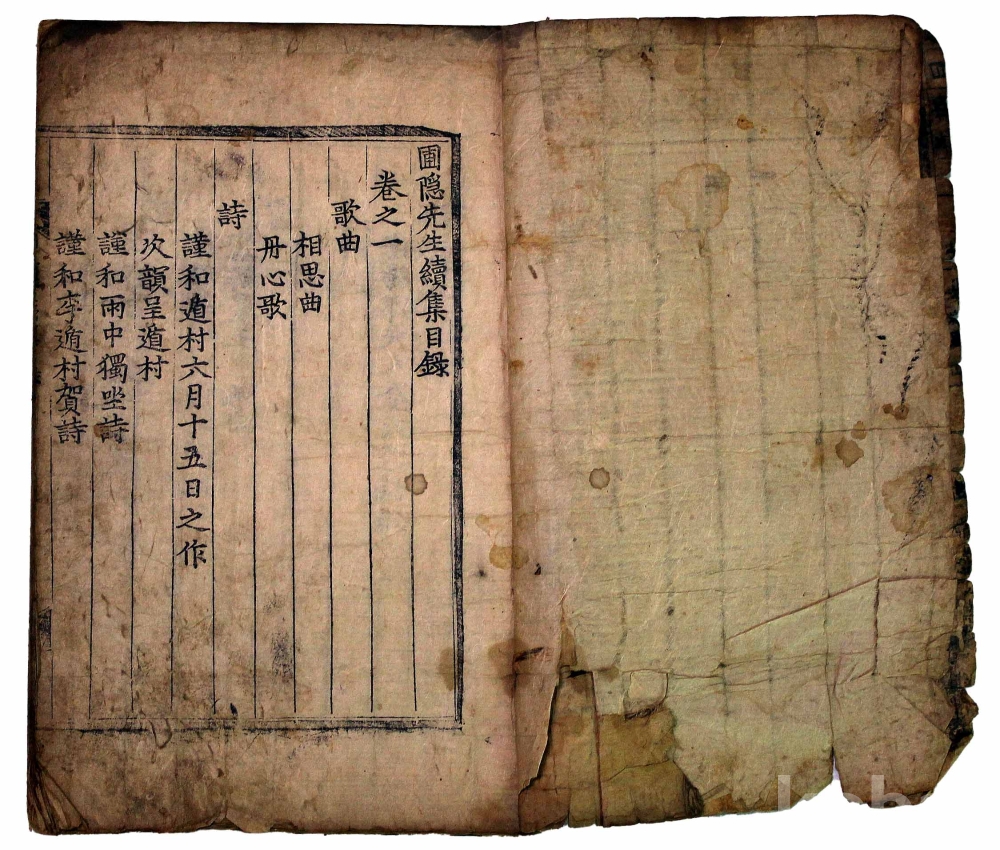 圃隱先生續集目録
卷之一
歌曲
相思曲
丹心歌
詩
謹和遁村六月十五日之作
次韻呈遁村
謹和雨中獨坐詩
謹和李遁村賀詩